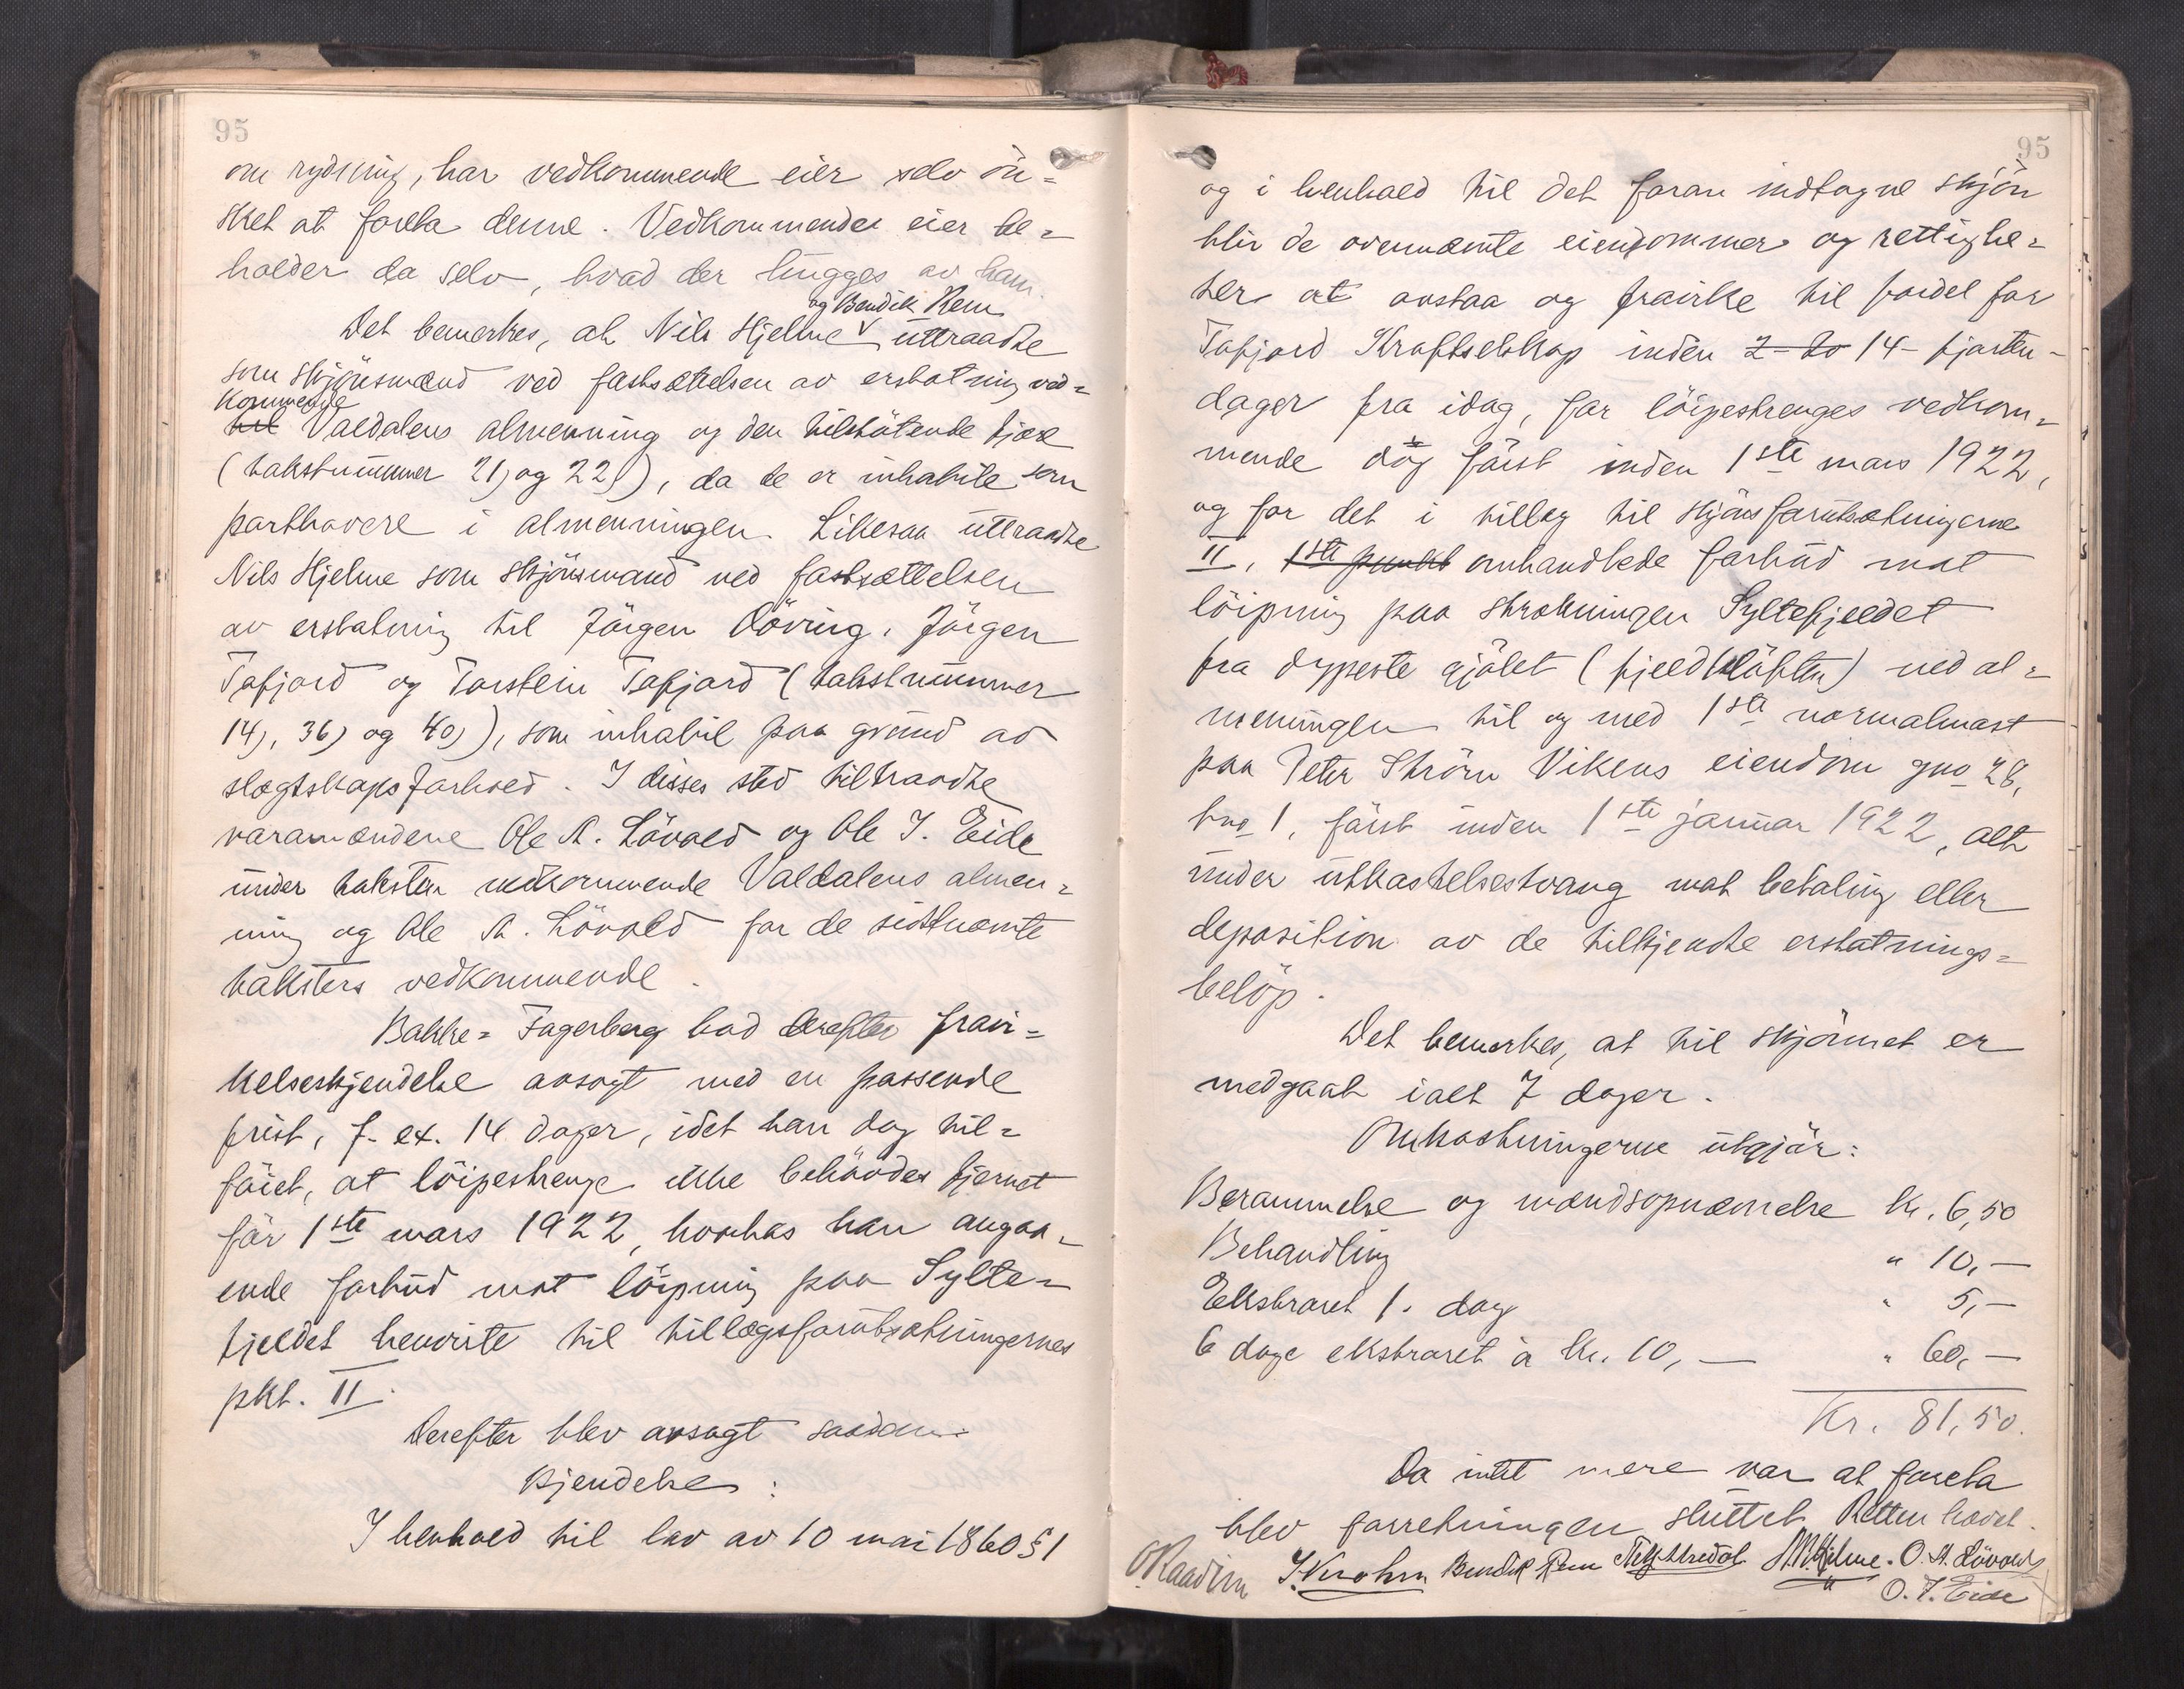 95
om rydning, har vedkommende eier selv ön=
sket at foreta denne. Vedkommendes eier be=
holder da selv, hvad der hugges av ham.
og Bendik Rem
Det bemerkes, at Nils Hjelme v uttraadte
som skjönsmænd ved fastsættelsen av erstatning ved=
kommende
til Valdalens almenning og den tilstötende fjeld
(takstnummer 21) og 22)), da de er inhabile som
parthavere i almenningen. Likesaa uttraadte
Nils Hjelme som skjönsmand ved fastsættelsen
av erstatning til Jörgen Döving, Jörgen
Tafjord og Torstein Tafjord (takstnummer
14), 36) og 40)), som inhabil paa grund av
slegtskapsforhold. I disses sted tiltraadte
varamændene Ole A. Lövold og Ole J. Eide
under taksten vedkommende Valdalens almen=
ning og Ole A. Lövold for de sidstnævnte
taksters vedkommende.
Bakke=Fagerberg bad derefter fravi=
kelseskjendelse avsagt med en passende
frist, f. ex. 14 dager, idet han dog til=
föiet, at löipestrenge ikke behövdes fjernet
för 1ste mars 1922, hvorhos han angaa=
ende forbud mot löipning paa Sylte=
fjeldet henviste til tillægsforutsætningernes
pkt. II.
Derefter blev avsagt saadan
Kjendelse:
I henhold til lov av 10 mai 1860 § 1
95
og i henhold til det foran indtagne skjön
blir de ovennævnte eiendommer og rettighe=
ter at avstaa og fravike til fordel for
Tafjord Kraftselskap inden 2-to 14-fjorten-
dager fra idag, for löipestrenges vedkom=
mende dog först inden 1ste mars 1922,
og for det i tillæg til skjönsforutsætningerne
II, 1ste punkt omhandlede forbud mot
löipning paa strækningen Syltefjeldet
fra dypeste gjölet (fjeldklöften) ved al=
menningen til og med 1ste normalmast
paa Peter Ström Vikens eiendom gno 28,
bno 1, först inden 1ste januar 1922, alt
under utkastelsestvang mot betaling eller
deposition av de tilkjendte erstatnings=
belöp.
Det bemerkes, at til skjönnet er
medgaat ialt 7 dager.
Omkostningerne utgjör:
Berammelse og mændsopnævnelse kr. 6,50
Behandling " 10,—
Ekstraret 1. dag " 5,—
6 dage ekstraret à kr. 10,— " 60,—
Kr. 81,50.
Da intet mere var at foreta
blev forretningen sluttet. Retten hævet.
O Raadim J. Krohn Bendik Rem N. Hjelme. O. A. Lövold
O. J. Eide